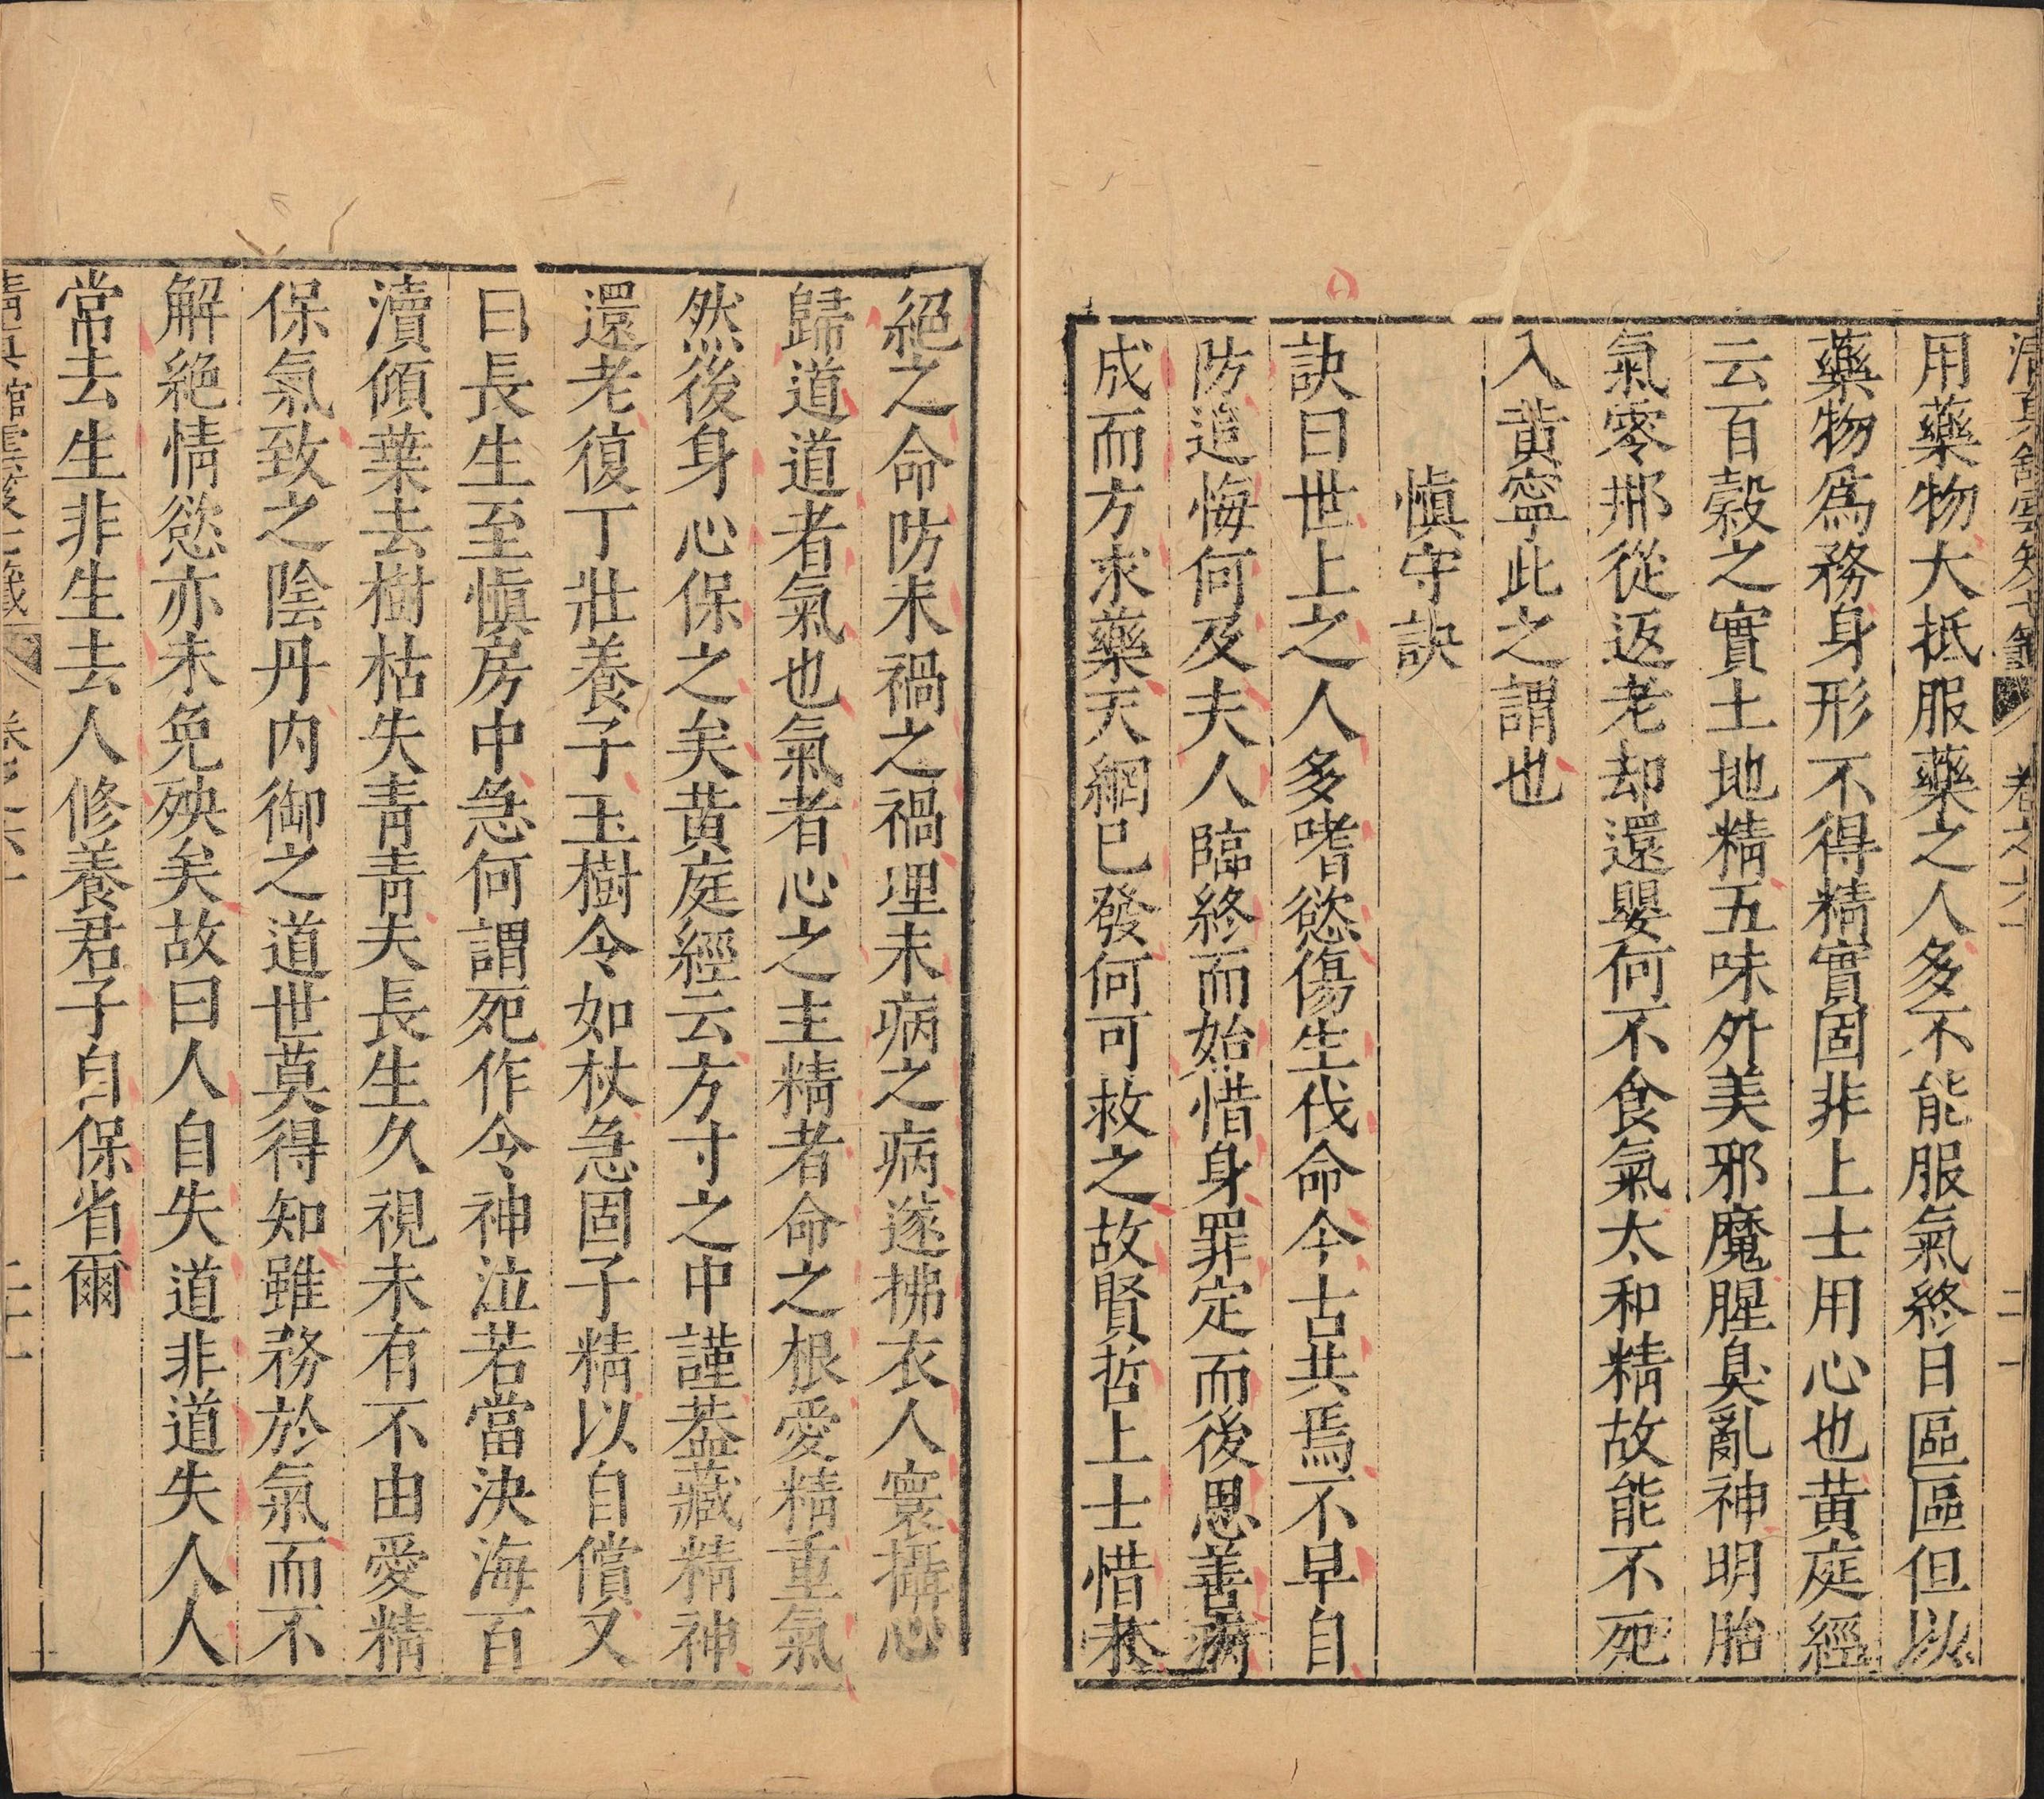 用藥物大抵服藥之人多不能服氣終日區區但以
藥物爲務身形不得精實固非上士用心也黃庭經
云百穀之實土地精五味外美邪魔腥臭亂神明胎
氣零那從返老却還嬰何不食氣太和精故能不死
入黃寧此之謂也
慎守訣
訣曰世上之人多嗜慾傷生伐命今古共焉不早自
防追悔何及夫人臨終而始惜身罪定而後思善病
成而方求藥天網已發何可救之故賢哲上士惜未
絕之命防未禍之禍理未病之病遂拂衣人寰攝心
歸道道者氣也氣者心之主精者命之根愛精重氣
然後身心保之矣黃庭經云方寸之中謹葢藏精神
還老復丁壯養子玉樹令如杖急固子精以自償又
曰長生至慎房中急何謂死作令神泣若當決海百
瀆傾葉去樹枯失青青夫長生久視未有不由愛精
保氣致之陰丹內御之道世莫得知雖務於氣而不
解絕情慾亦未免殃矣故曰人自失道非道失人人
常去生非生去人修養君子自保省爾